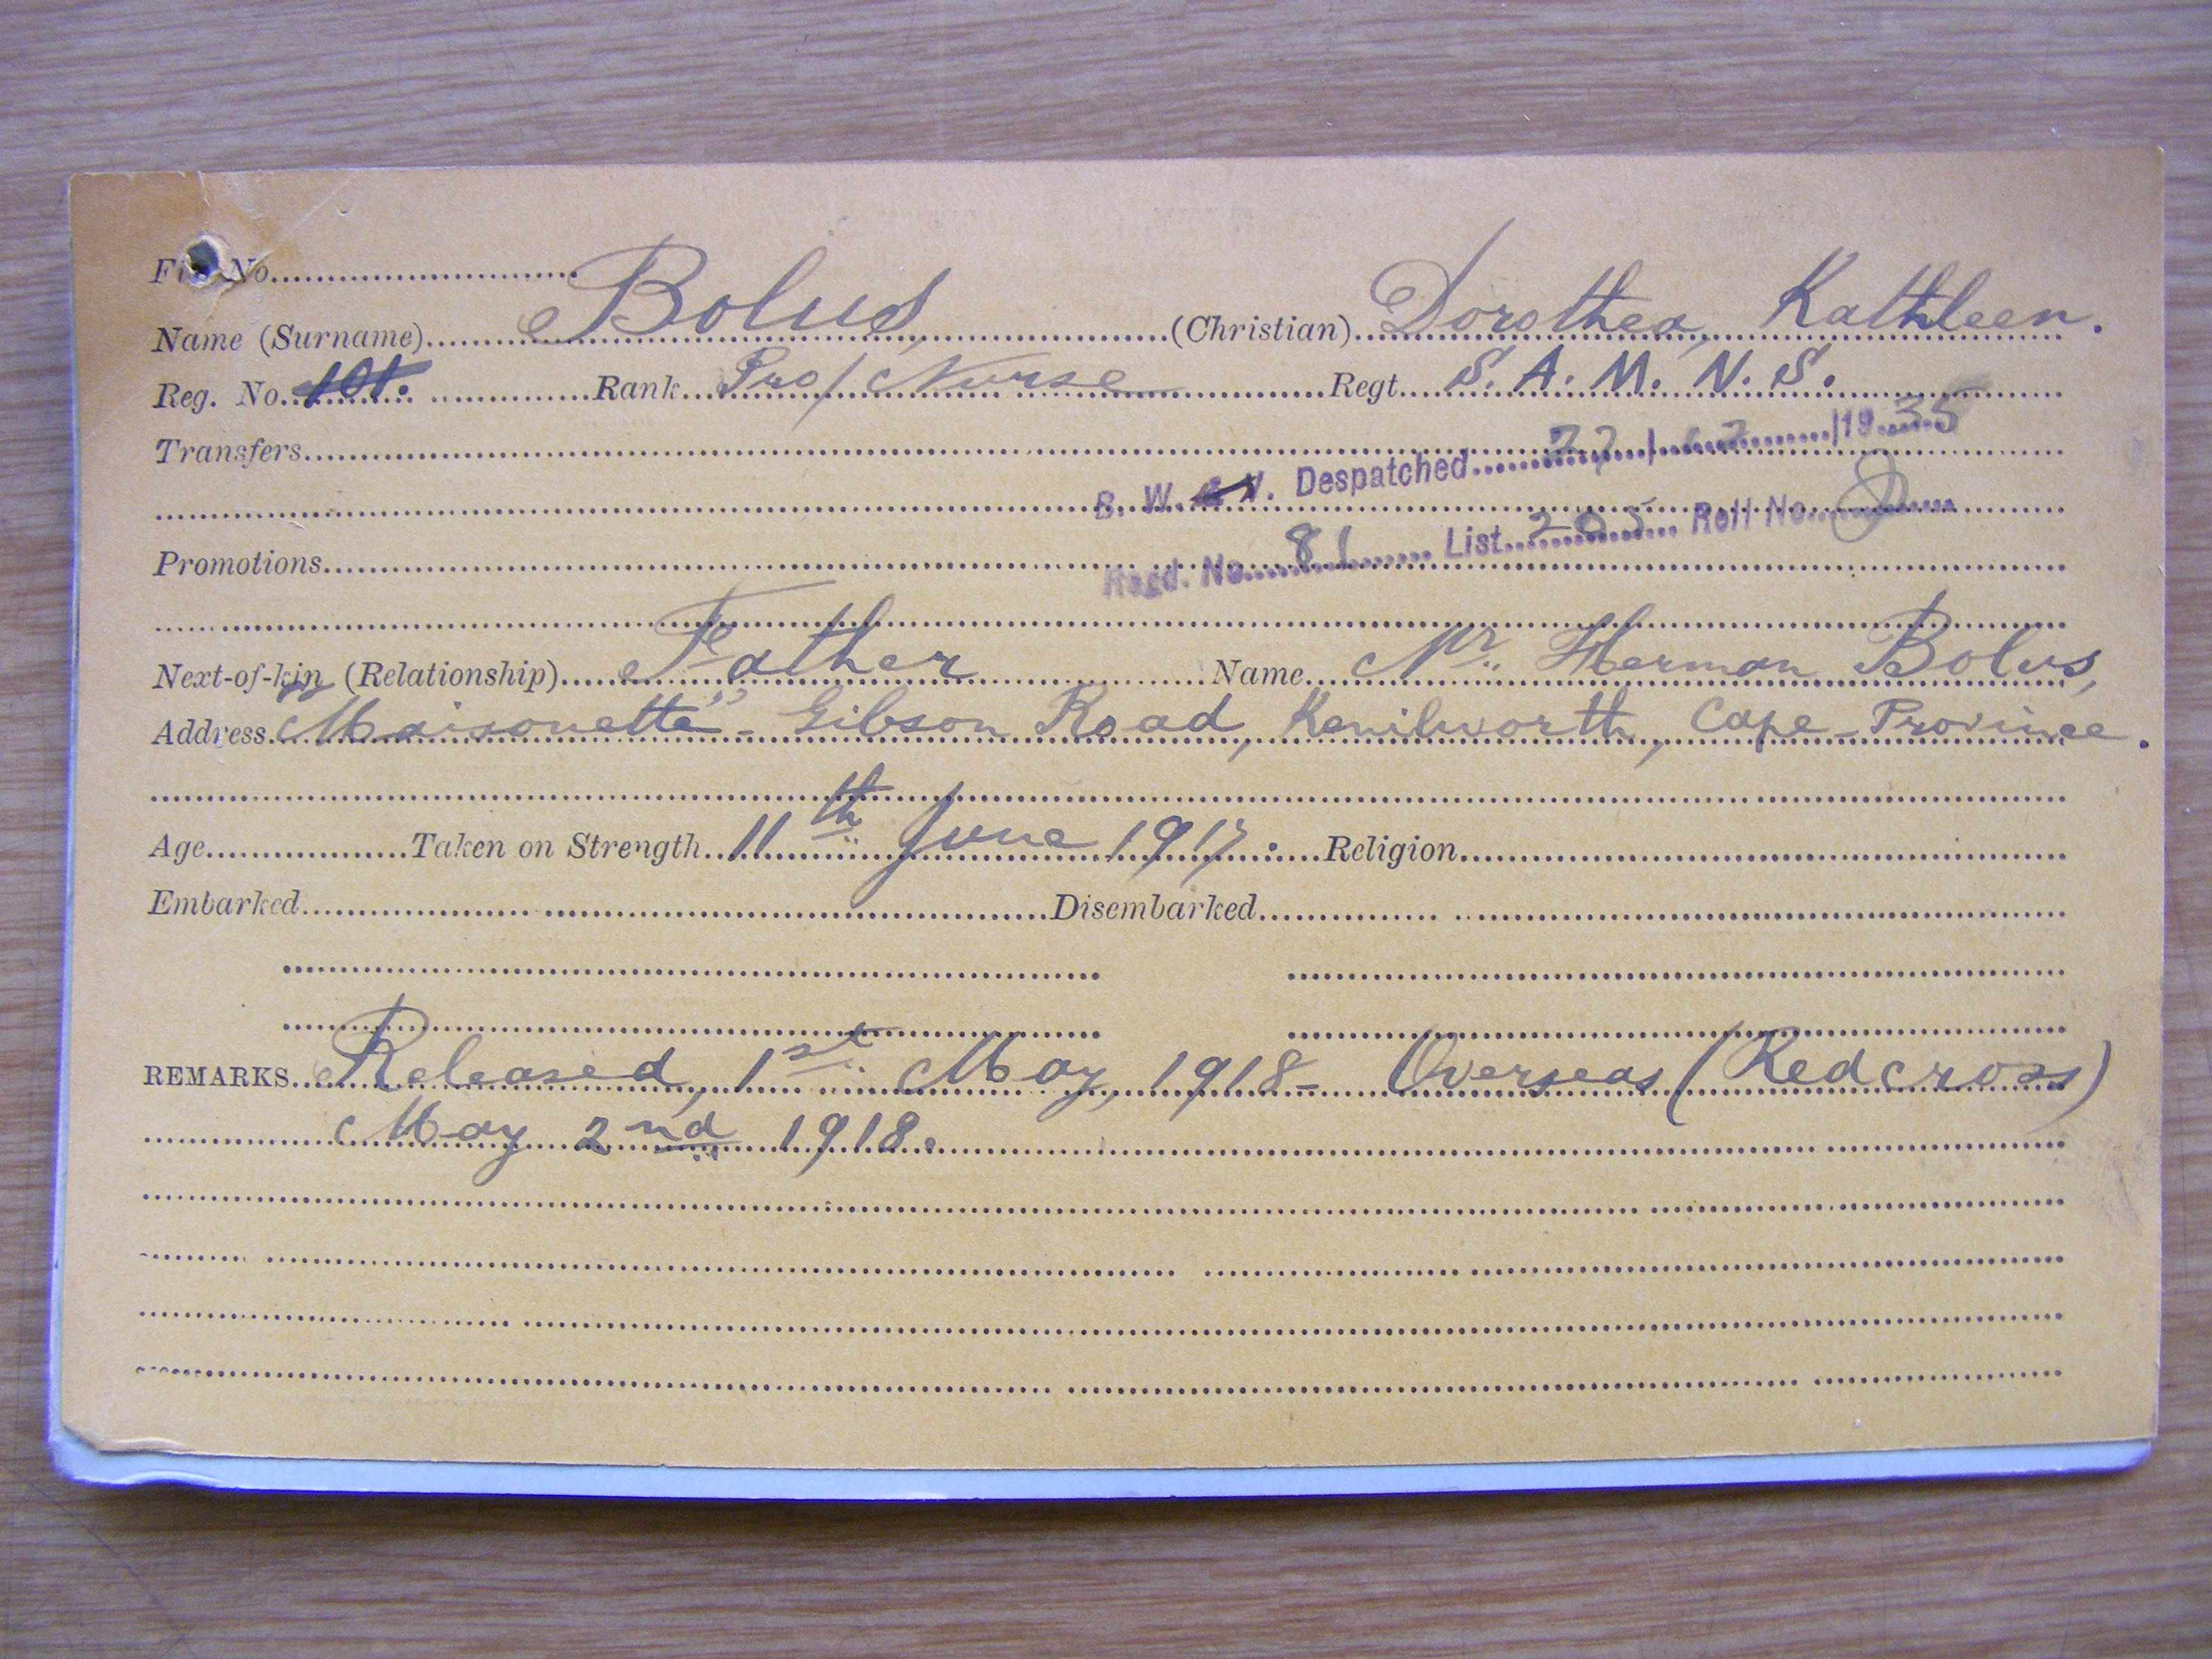 File No.
Name (Surname) Bolus, (Christian) Dorothea, Kathleen.
Reg. No. 101. Rank Pro/Nurse Regt. S. A. M. N. S.
Transfers
B. W. & V. Despatched 27 / 12 / 1935
Promotions
Regd. No. 81 List 205 Roll No.
Next-of-kin (Relationship) Father Name Mr. Herman Bolus,
Address "Maisonette" - Gibson Road, Kenilworth, Cape-Province.
Age Taken on Strength 11th June 1917. Religion
Embarked Disembarked
REMARKS Released, 1st May, 1918 - Overseas (Redcross)
May 2nd 1918.